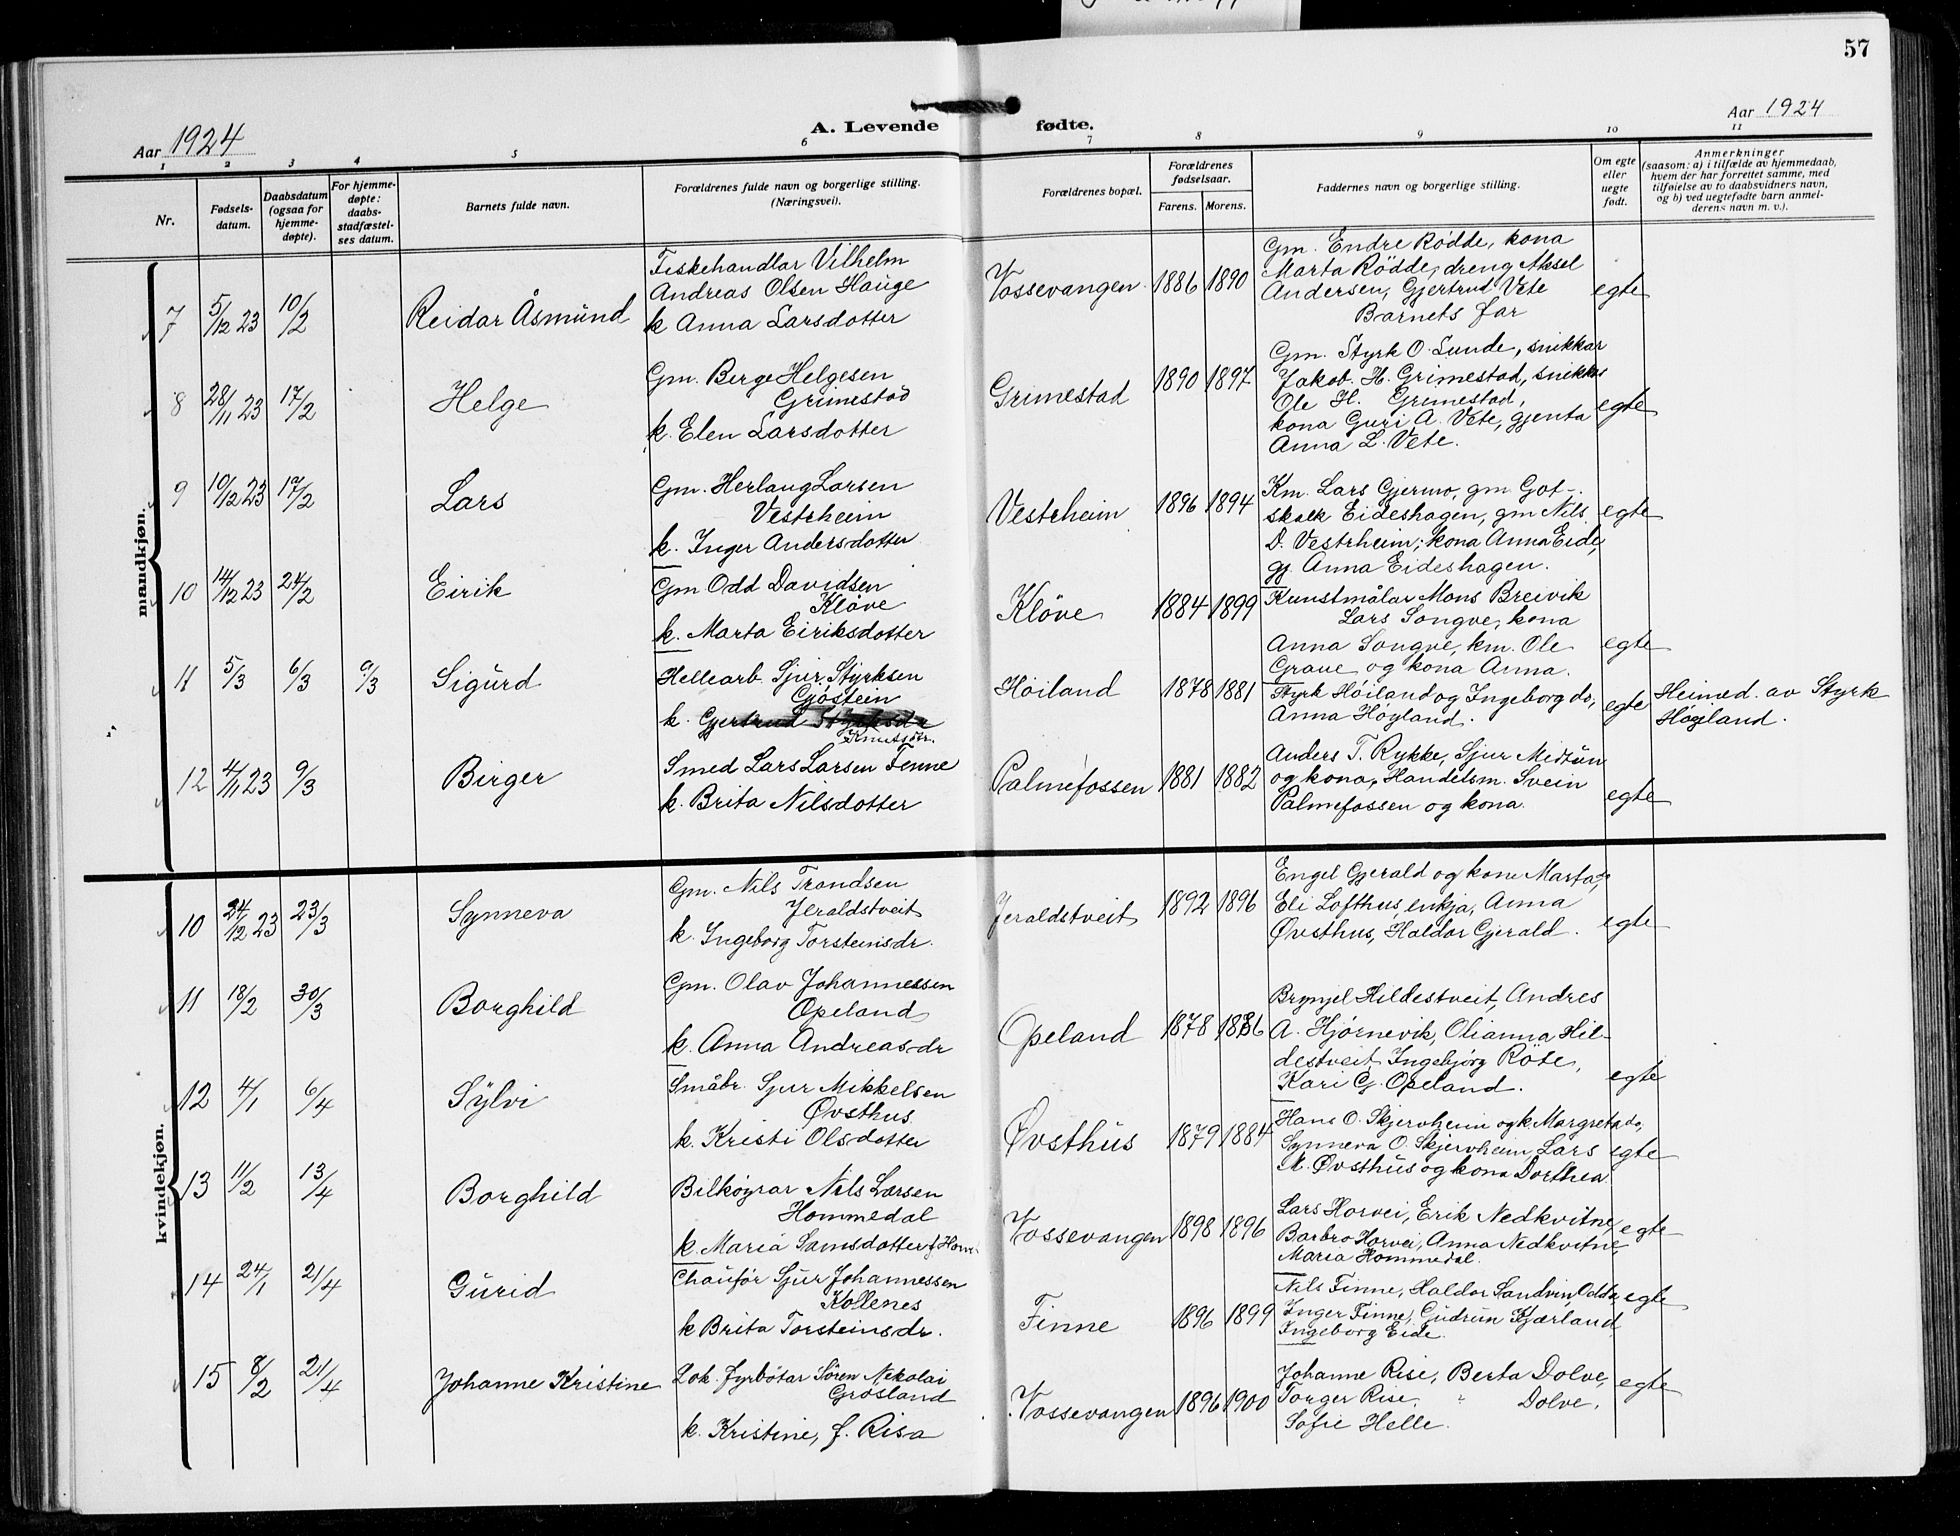 57
Aar 1924
A. Levende fødte.
Aar 1924
1 2 3 4 5 6 7 8 9 10 11
Nr.
Fødsels-
datum.
Daabsdatum
(ogsaa for
hjemme-
døpte).
For hjemme-
døpte:
daabs-
stadfæstel-
ses datum.
Barnets fulde navn.
Forældrenes fulde navn og borgerlige stilling.
(Næringsvei).
Forældrenes bopæl.
Forældrenes
fødselsaar.
Farens. Morens.
Faddernes navn og borgerlige stilling.
Om egte
eller
uegte
født.
Anmerkninger
(saasom: a) i tilfælde av hjemmedaab,
hvem der har forrettet samme, med
tilføielse av to daabsvidners navn,
og b) ved uegtefødte barn anmel-
derens navn m. v.).
mandkjøn.
7 5/12 23 10/2 Reidar Åsmund
Fiskehandlar Vilhelm
Andreas Olsen Hauge
k Anna Larsdotter
Vossevangen 1886 1890
Gm. Endre Rødde, kona
Marta Rödde, dreng Aksel
Andersen, Gjertrud Vete
Barnets far
egte
8 28/11 23 17/2 Helge
Gm. Berge Helgesen
Grimestad
k. Elen Larsdotter
Grimestad 1890 1897
Gm. Styrk O. Lunde, snikkar
Jakob. H. Grimestad, snikkar
Ole H. Grimestad,
kona Guri A. Vete, gjenta
Anna L. Vete.
egte
9 10/12 23 17/2 Lars
Gm. Herlaug Larsen
Vestrheim
k. Inger Andersdotter
Vestrheim 1896 1894
Km. Lars Gjermo, gm Got-
skalk Eideshagen, gm Nils
D. Vestrheim; kona Anna Eide,
gj. Anna Eideshagen.
egte
10 14/12 23 24/2 Eirik
Gm Odd Davidsen
Klöve
k. Marta Eiriksdotter
Klöve 1884 1899
Kunstmålar Mons Breivik
Lars Songve, kona
Anna Songve, km. Ole
Grave og kona Anna.
egte
11 5/3 6/3 9/3 Sigurd
Hellearb. Sjur Styrksen
Gjöstein
k. Gjertrud Styrksdr
Knutsdtr.
Höiland 1878 1881
Styrk Höiland og Ingeborg do,
Anna Höyland.
egte
Heimed. av Styrk
Högeland.
12 4/11 23 9/3 Birger
Smed Lars Larsen Fenne
k. Brita Nilsdotter
Palmefossen 1881 1882
Anders T. Rykke, Sjur Medtun
og kona, Handelsm. Svein
Palmefossen og kona.
egte
kvindekjøn.
10 24/12 23 23/3 Synneva
Gm. Nils Trondsen
Jeraldstveit
k. Ingeborg Torsteinsdr.
Jeraldstveit 1892 1896
Engel Gjerald og kona Marta,
Eli Lofthus, enkja, Anna
Øvsthus, Haldor Gjerald.
egte
11 18/2 30/3 Borghild
Gm. Olav Johannessen
Opeland
k. Anna Andreasdr
Opeland 1878 1886
Brynjel Hildestveit, Andres
A. Hjørnevik, Olianna Hil-
destveit, Ingebjörg Röte,
Kari G. Opeland.
egte
12 4/1 6/4 Sylvi
Småbr. Sjur Mikkelsen
Øvsthus.
k. Kristi Olsdotter
Øvsthus 1879 1884
Hans O. Skjervheim og k. Margreta do,
Synneva O. Skjervheim, Lars
M. Øvsthus og kona Dorthea
egte
13 11/2 13/4 Borghild
Bilköyrar Nils Larsen
Hommedal
k. Maria Samsdotter f. Horvei
Vossevangen 1898 1896
Lars Horvei, Erik Nedkvitne,
Barbro Horvei, Anna Nedkvitne
Maria Hommedal.
egte
14 24/1 21/4 Gurid
Chauför Sjur Johannessen
Kollenes
k Brita Torsteinsdr.
Finne 1896 1899
Nils Finne, Haldor Sandvin, Odda,
Inger Finne, Gudrun Kjærland,
Ingeborg Eide.
egte
15 8/2 21/4 Johanne Kristine
Lok. fyrbötar Sören Nekolai
Grosland
k. Kristine, f. Risa
Vossevangen 1896 1900
Johanne Rise, Berta Dolve,
Torger Rise, " Dolve,
Sofie Helle.
egte